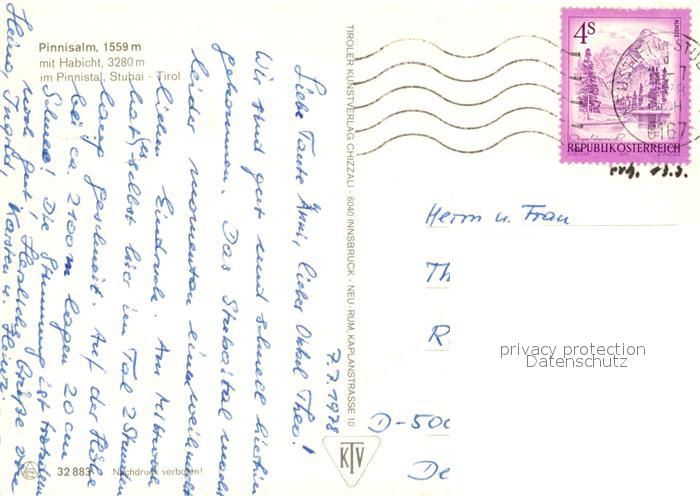 Pinnisalm, 1559 m
mit Habicht, 3280 m
im Pinnistal, Stubai - Tirol
7.7.1978
Liebe Tante Änni, lieber Onkel Theo!
Wir sind gut und schnell hierhin
gekommen. Das Stubaital macht
leider momentan einen weihnacht-
lichen Eindruck. Am Mittwoch
hat es selbst hier im Tal 2 Stunden
lang geschneit. Auf der Höhe
bei ca. 2100 m lagen 20 cm
Schnee! Die Stimmung ist trotzdem
noch gut! Herzliche Grüße von
Heino, Ingrid, Karsten u. Heiner
32 883 Nachdruck verboten!
TIROLER KUNSTVERLAG CHIZZALI · 6040 INNSBRUCK - NEU-RUM, KAPLANSTRASSE 10
KTV
4S
ALMSEE
REPUBLIK ÖSTERREICH
6167
Herrn u. Frau
Th
R
D-500
De
privacy protection
Datenschutz